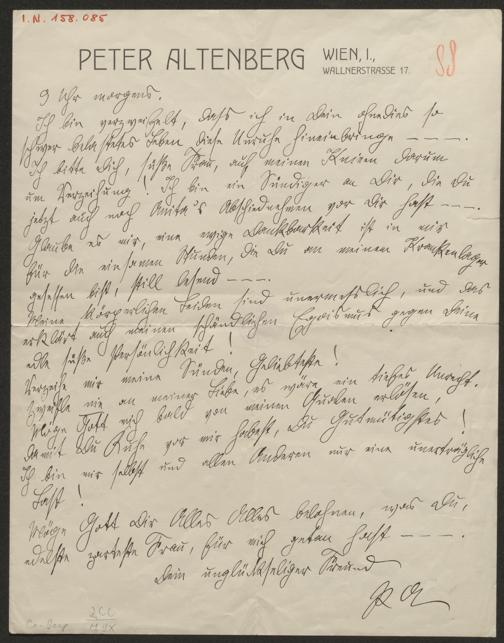 I.N. 158.085
PETER ALTENBERG WIEN, I.,
WALLNERSTRASSE 17.
88
9 Uhr morgens.
Ich bin verzweifelt, dass ich in Dein ohnedies so
schwer belastetes Leben diese Unruhe hineinbringe — — —.
Ich bitte Dich, süße Frau, auf meinen Knieen darum
um Verzeihung! Ich bin ein Sündiger an Dir, die Du
jetzt auch noch Anita's Abschiednehmen vor Dir hast — — —.
Glaube es mir, eine ewige Dankbarkeit ist in mir
für die einsamen Stunden, die Du an meinem Krankenlager
gesessen bist, still lesend — — —.
Meine körperlichen Leiden sind unermesslich, und das
erklärt auch meinen schändlichen Egoismus gegen Deine
edle süße Persönlichkeit!
Verzeihe mir meine Sünden, Geliebteste!
Zweifle nie an meiner Liebe, es wäre ein tiefes Unrecht.
Möge Gott mich bald von meinen Qualen erlösen,
damit Du Ruhe vor mir habest, Du Gutmütigste!
Ich bin mir selbst und allen Anderen nur eine unerträgliche
Last!
Möge Gott Dir Alles Alles belohnen, was Du,
edelste zarteste Frau, für mich getan hast — — —.
Dein unglückseliger Freund
PA